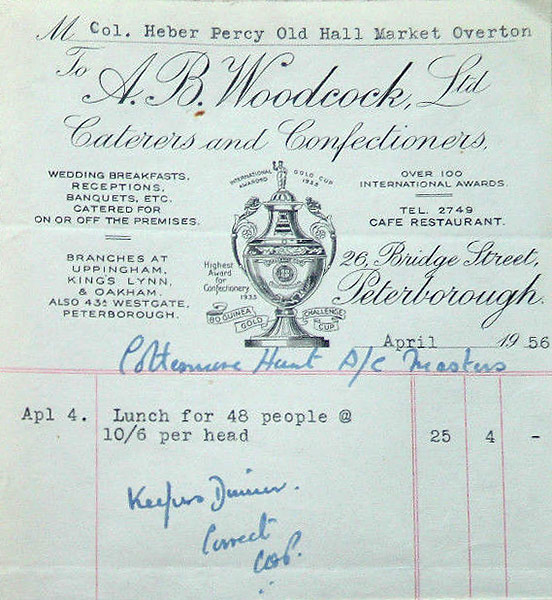 M Col. Heber Percy Old Hall Market Overton
To A. B. Woodcock, Ltd
Caterers and Confectioners.
WEDDING BREAKFASTS,
RECEPTIONS,
BANQUETS, ETC.
CATERED FOR
ON OR OFF THE PREMISES.
BRANCHES AT
UPPINGHAM,
KING'S LYNN,
& OAKHAM.
ALSO 43A WESTGATE,
PETERBOROUGH.
INTERNATIONAL GOLD CUP
AWARDED 1933
Highest
Award
for
Confectionery
1933
80 GUINEA CHALLENGE
GOLD CUP
OVER 100
INTERNATIONAL AWARDS.
TEL. 2749
CAFE RESTAURANT.
26, Bridge Street,
Peterborough.
April 1956
Cottesmore Hunt A/C Masters
Apl 4. Lunch for 48 people @
10/6 per head 25 4 -
Keepers Dinner.
Correct